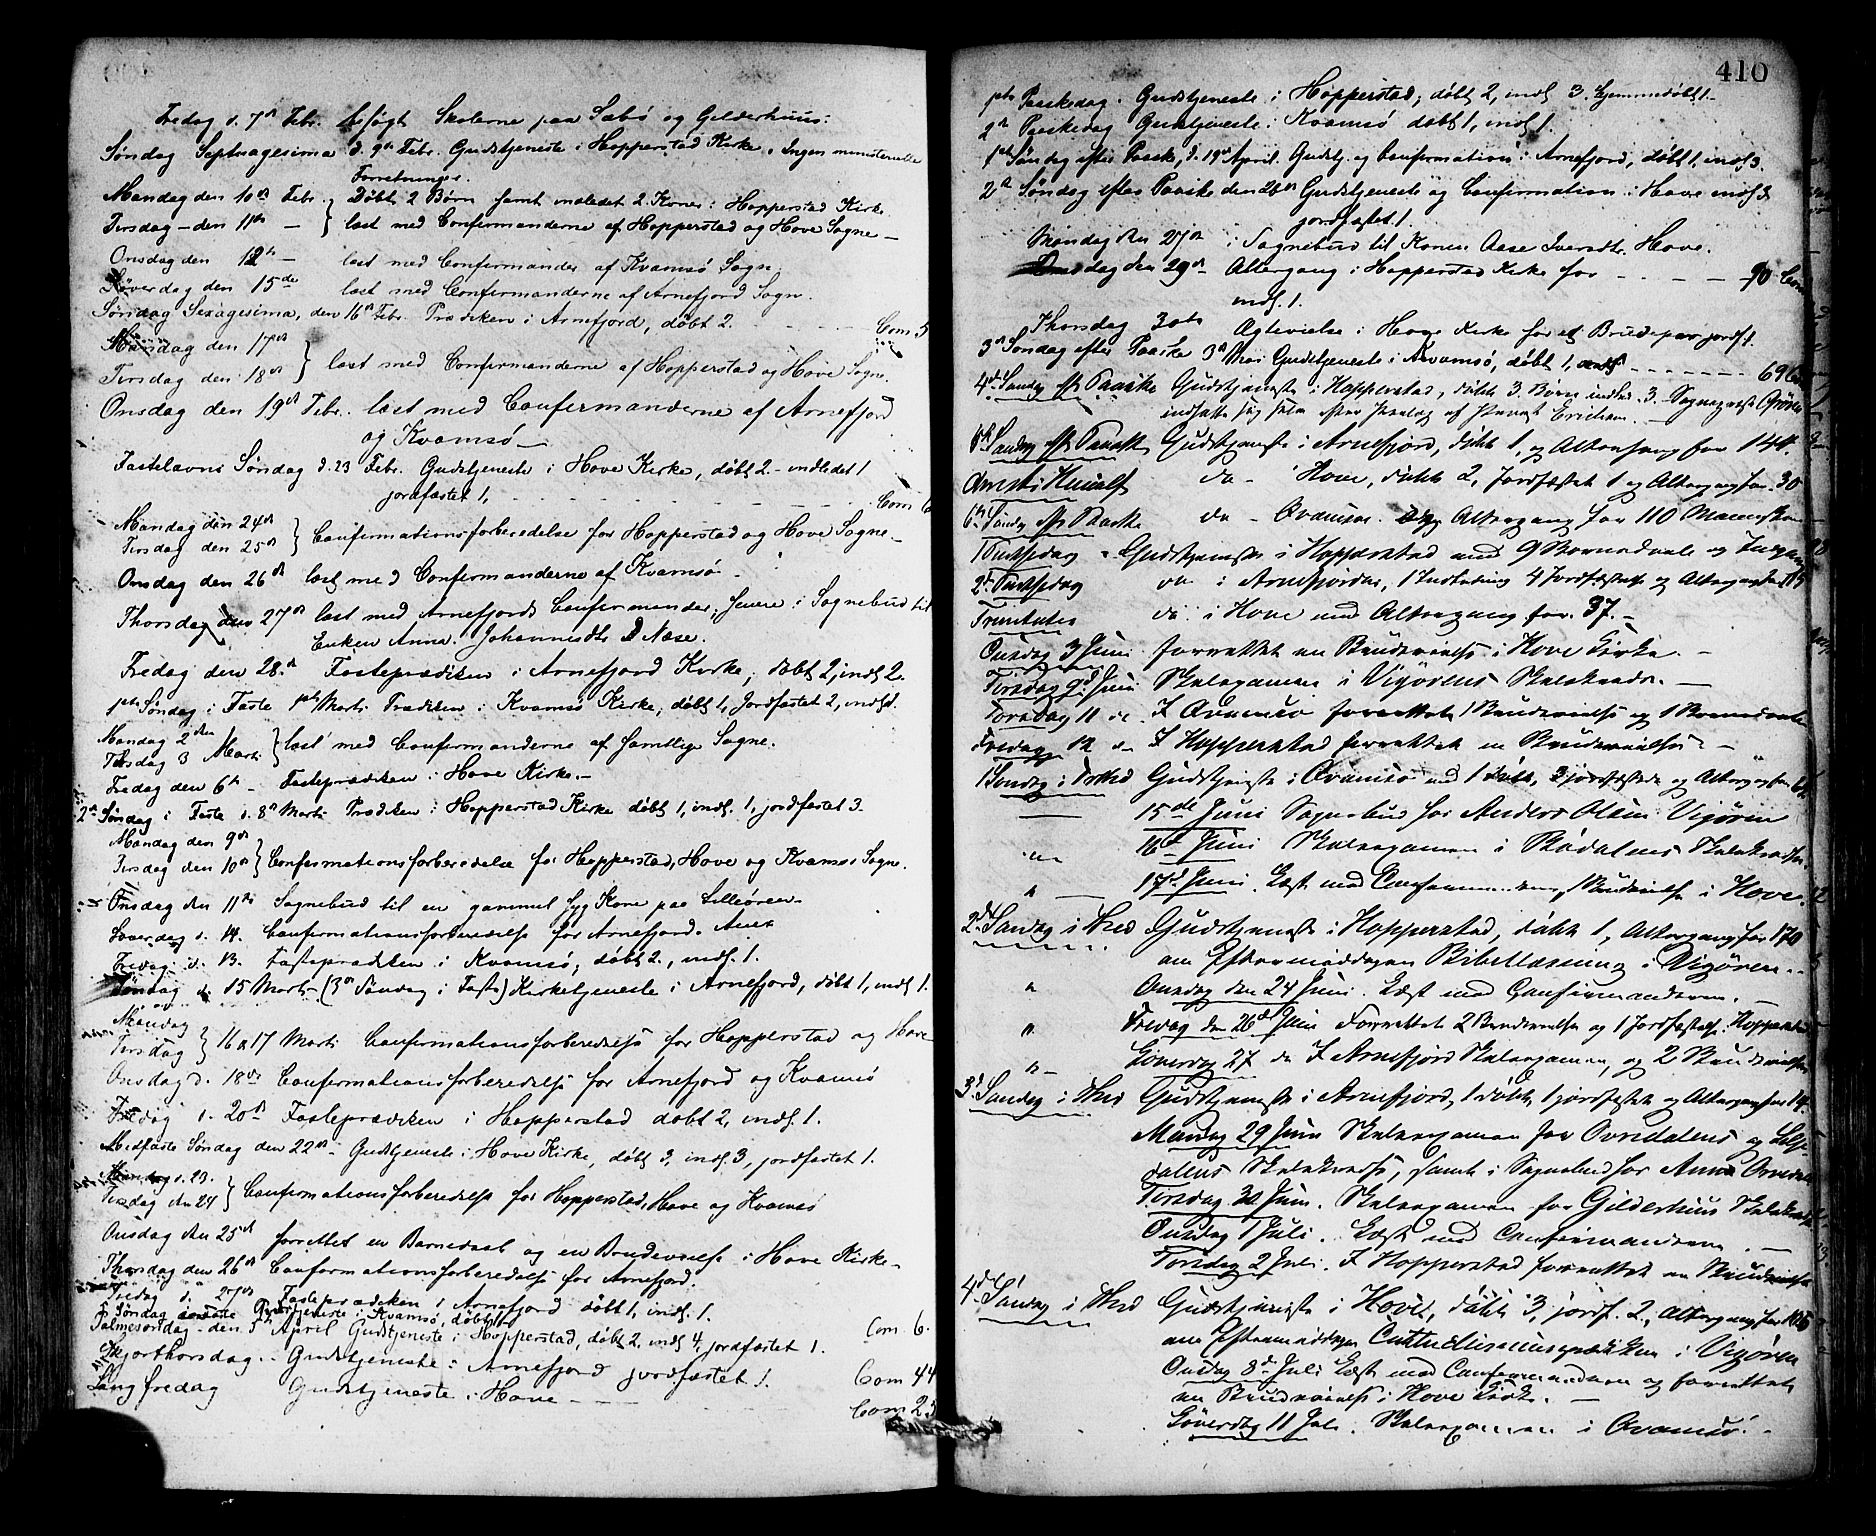 Fredag d. 7de Febr. besøgt Skolerne paa Sæbø og Gilderhuus:
Søndag Septuagesima d. 9de Febr. Gudstjeneste i Hopperstad Kirke. Ingen ministerielle
Forretninger.
Mandag den 10de Febr. Døbt 2 Børn samt indledet 2 Koner i Hopperstad Kirke
Tirsdag – den 11te – læst med Confirmanderne af Hopperstad og Hove Sogne –
Onsdag den 12te – læst med Confirmander af Kvamsø Sogn.
Løverdag den 15de læst med Confirmanderne af Arnefjord Sogn.
Søndag Sexagesima, den 16de Febr. Prædiken i Arnefjord, døbt 2. Com 5
Mandag den 17de
Tirsdag den 18de læst med Confirmanderne af Hopperstad og Hove Sogne.
Onsdag den 19de Febr. læst med Confirmanderne af Arnefjord
og Kvamsø –
Fastelavns Søndag d. 23 Febr. Gudstjeneste i Hove Kirke, døbt 2 – indledet 1
jordfæstet 1, Com 6
Mandag den 24de
Tirsdag den 25de Confirmationsforberedelse for Hopperstad og Hove Sogne –
Onsdag den 26de læst med Confirmanderne af Kvamsø –
Thorsdag den 27de læst med Arnefjords Confirmander, senere i Sognebud til
Enken Anna Johannesdtr Næse.
Fredag den 28de Fasteprædiken i Arnefjord Kirke, døbt 2, indl. 2.
1ste Søndag i Faste 1ste Marts Prædiken i Kvamsø Kirke, døbt 1, Jordfæstet 2, indl. 1.
Mandag 2den
Tirsdag 3 Marts læst med Confirmanderne af samtlige Sogne.
Fredag den 6te – Fasteprædiken i Hove Kirke. –
2den Søndag i Faste d. 8de Marts Prædiken i Hopperstad Kirke døbt 1, indl. 1, jordfæstet 3.
Mandag den 9de
Tirsdag den 10de Confirmationsforberedelse for Hopperstad, Hove og Kvamsø Sogne.
Onsdag den 11te Sognebud til en gammel syg Kone paa Lilleøren –
Løverdag d. 14. Confirmationsforberedelse for Arnefjord.
Fredag d. 13. Fasteprædiken i Kvamsø, døbt 2., indl. 1.
Søndag d. 15 Marts (3die Søndag i Faste) Kirketjeneste i Arnefjord, døbt 1, indl 1.
Mandag
Tirsdag 16 & 17 Marts Confirmationsforberedelse for Hopperstad og Hove
Onsdag d. 18de Confirmationsforberedelse for Arnefjord og Kvamsø
Fredag d. 20de Fasteprædiken i Hopperstad døbt 2, indl. 1.
Midfaste Søndag den 22de – Gudstjeneste i Hove Kirke, døbt 3, indl. 3, jordfæstet 1.
Mandag d. 23.
Tirsdag den 24 Confirmationsforberedelse for Hopperstad, Hove og Kvamsø
Onsdag den 25de forrettet en Barnedaab og en Brudevielse i Hove Kirke –
Thorsdag den 26de Confirmationsforberedelse for Arnefjord.
Fredag d. 27de Fasteprædiken i Arnefjord døbt 1, indl. 1.
5 Søndag i Faste Gudstjeneste i Kvamsø, døbt
Palmesøndag – den 5te April Gudstjeneste i Hopperstad, døbt 2, indl 4, jordfæstet 1. Com. 6.
Skjærthorsdag. Gudstjeneste i Arnefjord jordfæstet 1. Com 44
Langfredag Gudstjeneste i Hove – Com 25
410
1ste Paaskedag. Gudstjeneste i Hopperstad, døbt 2, indl 3. Hjemmedøbt 1 –
2den Paaskedag Gudstjeneste i Kvamsø døbt 1, indl. 1.
1ste Søndag efter Paaske, d. 19de April. Gudstj. og Confirmation i Arnefjord, døbt 1, indl. 3.
2den Søndag efter Paaske den 26de Gudstjeneste og Confirmation i Hove indl 3
jordfæstet 1.
Mandag den 27de i Sognebud til Konen Aase Iversdtr. Hove.
Onsdag den 29de Altergang i Hopperstad Kirke for – – – 90 Com
indl. 1.
Thorsdag 30te Ægtevielse i Hove Kirke for et Brudepar jordf. 1.
3die Søndag efter Paaske 3die Mai Gudstjeneste i Kvamsø, døbt 1, indl – – – 69
4de Søndag eft Paaske Gudstjeneste i Hopperstad, døbt 3 Børn indled. 3. Sognepræst Grøner
indsatte sig selv efter Forslag af Provst Erichsen.
5te Søndag eft Paaske Gudstjeneste i Arnefjord, døbt 1, og Altergang for 144.
Christi Himmelf do – i Hove, døbt 2, Jordfæstet 1 og Altergang for 30
6te Søndag eft Paaske do – Qvamsø. Altergang for 110 Mennesker –
1 Pintsedag – Gudstjeneste i Hopperstad med 9 Barnedaab og
2d. Pintsedag do i Arnefjorden, 1 Indledning 4 Jordfæstelse og Altergang for 105
Trinitatis do. i Hove med Altergang for 37. –
Onsdag 3 Juni forrettet en Brudevielse i Hove Kirke. –
Tirsdag 9d. Juni Skoleexamen i Vigørens Skolekreds. –
Torsdag 11 do. I Qvamsø forrettet 1 Brudevielse og 1 Barnedaab
Fredag 12 do I Hopperstad forrettet en Brudevielse –
1 Søndag i Trefold Gudstjeneste i Qvamsø med 1 Døbt, 3 jordfæstede og Altergang for
15de Juni Sognebud for Anders Olsen Vigøren
16d. Juni Skoleexamen i Bødalens Skolekreds.
17d. Juni. Læst med Confirmanderne, 1 Brudevielse i Hove.
2d. Søndag i Tref Gudstjeneste i Hopperstad, døbt 1, Altergang for 170
om Eftermiddagen Bibellæsning i Vigøren.
Onsdag den 24 Juni. Læst med Confirmanderne. –
Fredag den 26d. Juni Forrettet 2 Brudevielse og 1 Jordfæstelse, Hopperstad
Løverdag 27 do I Arnefjord Skoleexamen, og 2 Brudevielser
3d. Søndag i Tref Gudstjeneste i Arnefjord, 1 døbt, 1 jordfæstet og Altergang for 14.
Mandag 29 Juni Skoleexamen for Ovrisdalens og
dalens Skolekreds, samt i Sognebud for Anna
Tirsdag 30 Juni. Skoleexamen for Gilderhuus Skolekreds
Onsdag 1 Juli. Læst med Confirmanderne. –
Torsdag 2 Juli. I Hopperstad forrettet en Brudevielse
4de Søndag i Tref Gudstjeneste i Hove, døbt 3, jordf. 2, Altergang for 106
om Eftermiddagen i Vigøren
Onsdag 8d. Juli Læst med Confirmanderne og forrettet
en Brudevielse i Hove Kirke. –
Løverdag 11 Juli. Skoleexamen i Qvamsø. –